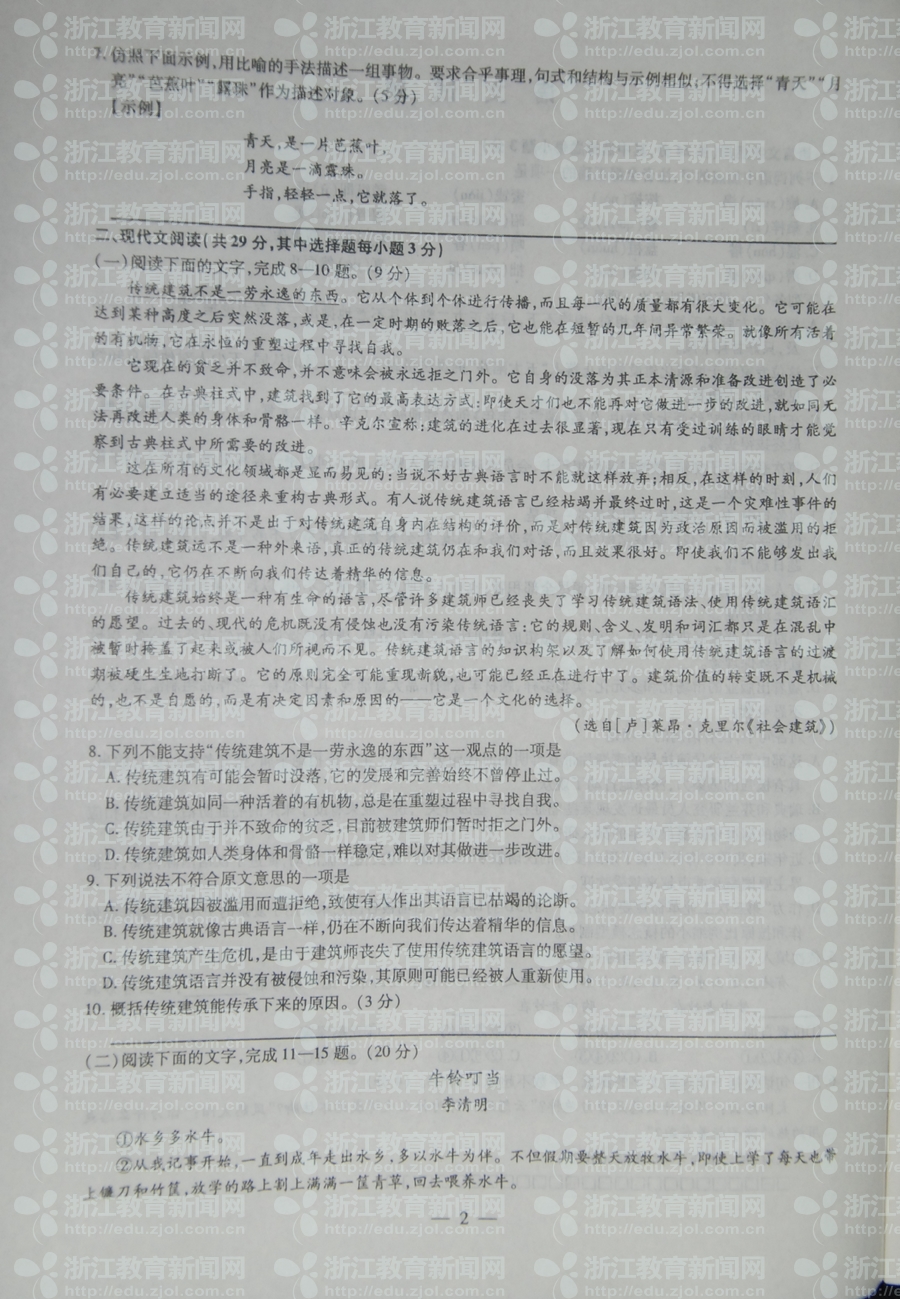 7. 仿照下面示例,用比喻的手法描述一组事物。要求合乎事理,句式和结构与示例相似;不得选择“青天”“月
亮”“芭蕉叶”“露珠”作为描述对象。(5分)
【示例】
青天,是一片芭蕉叶,
月亮是一滴露珠。
手指,轻轻一点,它就落了。
二、现代文阅读(共29分,其中选择题每小题3分)
(一)阅读下面的文字,完成8—10题。(9分)
传统建筑不是一劳永逸的东西。它从个体到个体进行传播,而且每一代的质量都有很大变化。它可能在
达到某种高度之后突然没落,或是,在一定时期的败落之后,它也能在短暂的几年间异常繁荣。就像所有活着
的有机物,它在永恒的重塑过程中寻找自我。
它现在的贫乏并不致命,并不意味会被永远拒之门外。它自身的没落为其正本清源和准备改进创造了必
要条件。在古典柱式中,建筑找到了它的最高表达方式:即使天才们也不能再对它做进一步的改进,就如同无
法再改进人类的身体和骨骼一样。辛克尔宣称:建筑的进化在过去很显著,现在只有受过训练的眼睛才能觉
察到古典柱式中所需要的改进。
这在所有的文化领域都是显而易见的:当说不好古典语言时不能就这样放弃;相反,在这样的时刻,人们
有必要建立适当的途径来重构古典形式。有人说传统建筑语言已经枯竭并最终过时,这是一个灾难性事件的
结果,这样的论点并不是出于对传统建筑自身内在结构的评价,而是对传统建筑因为政治原因而被滥用的拒
绝。传统建筑远不是一种外来语,真正的传统建筑仍在和我们对话,而且效果很好。即使我们不能够发出我
们自己的,它仍在不断向我们传达着精华的信息。
传统建筑始终是一种有生命的语言,尽管许多建筑师已经丧失了学习传统建筑语法、使用传统建筑语汇
的愿望。过去的、现代的危机既没有侵蚀也没有污染传统语言;它的规则、含义、发明和词汇都只是在混乱中
被暂时掩盖了起来或被人们所视而不见。传统建筑语言的知识构架以及了解如何使用传统建筑语言的过渡
期被硬生生地打断了。它的原则完全可能重现新貌,也可能已经正在进行中了。建筑价值的转变既不是机械
的,也不是自愿的,而是有决定因素和原因的——它是一个文化的选择。
(选自[卢]莱昂·克里尔《社会建筑》)
8. 下列不能支持“传统建筑不是一劳永逸的东西”这一观点的一项是
A. 传统建筑有可能会暂时没落,它的发展和完善始终不曾停止过。
B. 传统建筑如同一种活着的有机物,总是在重塑过程中寻找自我。
C. 传统建筑由于并不致命的贫乏,目前被建筑师们暂时拒之门外。
D. 传统建筑如人类身体和骨骼一样稳定,难以对其做进一步改进。
9. 下列说法不符合原文意思的一项是
A. 传统建筑因被滥用而遭拒绝,致使有人作出其语言已枯竭的论断。
B. 传统建筑就像古典语言一样,仍在不断向我们传达着精华的信息。
C. 传统建筑产生危机,是由于建筑师丧失了使用传统建筑语言的愿望。
D. 传统建筑语言并没有被侵蚀和污染,其原则可能已经被人重新使用。
10. 概括传统建筑能传承下来的原因。(3分)
(二)阅读下面的文字,完成11—15题。(20分)
牛铃叮当
李清明
①水乡多水牛。
②从我记事开始,一直到成年走出水乡,多以水牛为伴。不但假期要整天放牧水牛,即使上学了每天也带
上镰刀和竹筐,放学的路上割上满满一筐青草,回去喂养水牛。
— 2 —
浙江教育新闻网
http://edu.zjol.com.cn